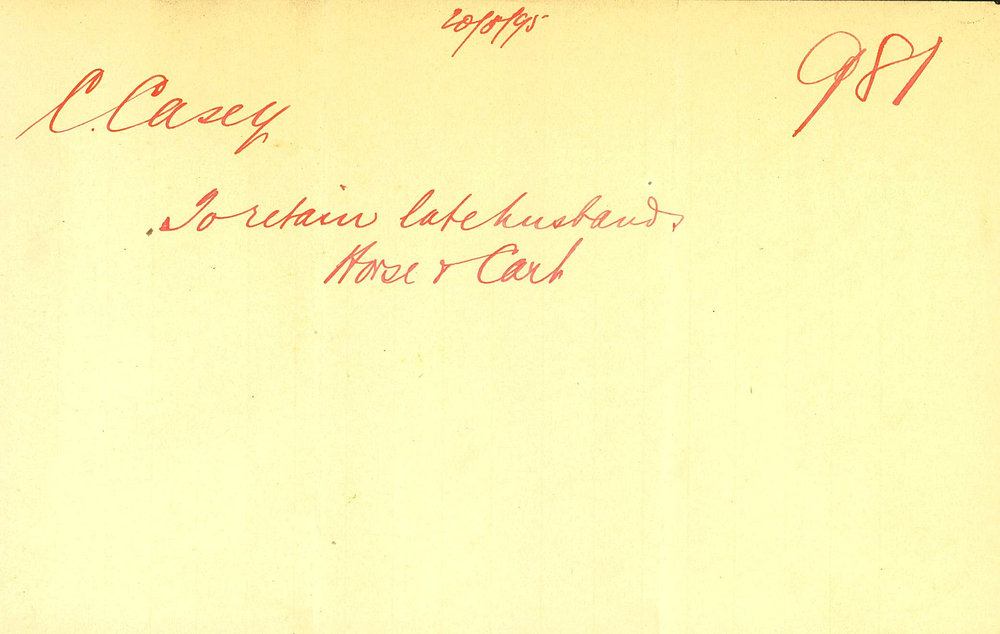 20/8/95
981
C. Casey
To retain late husbands
Horse & Cart